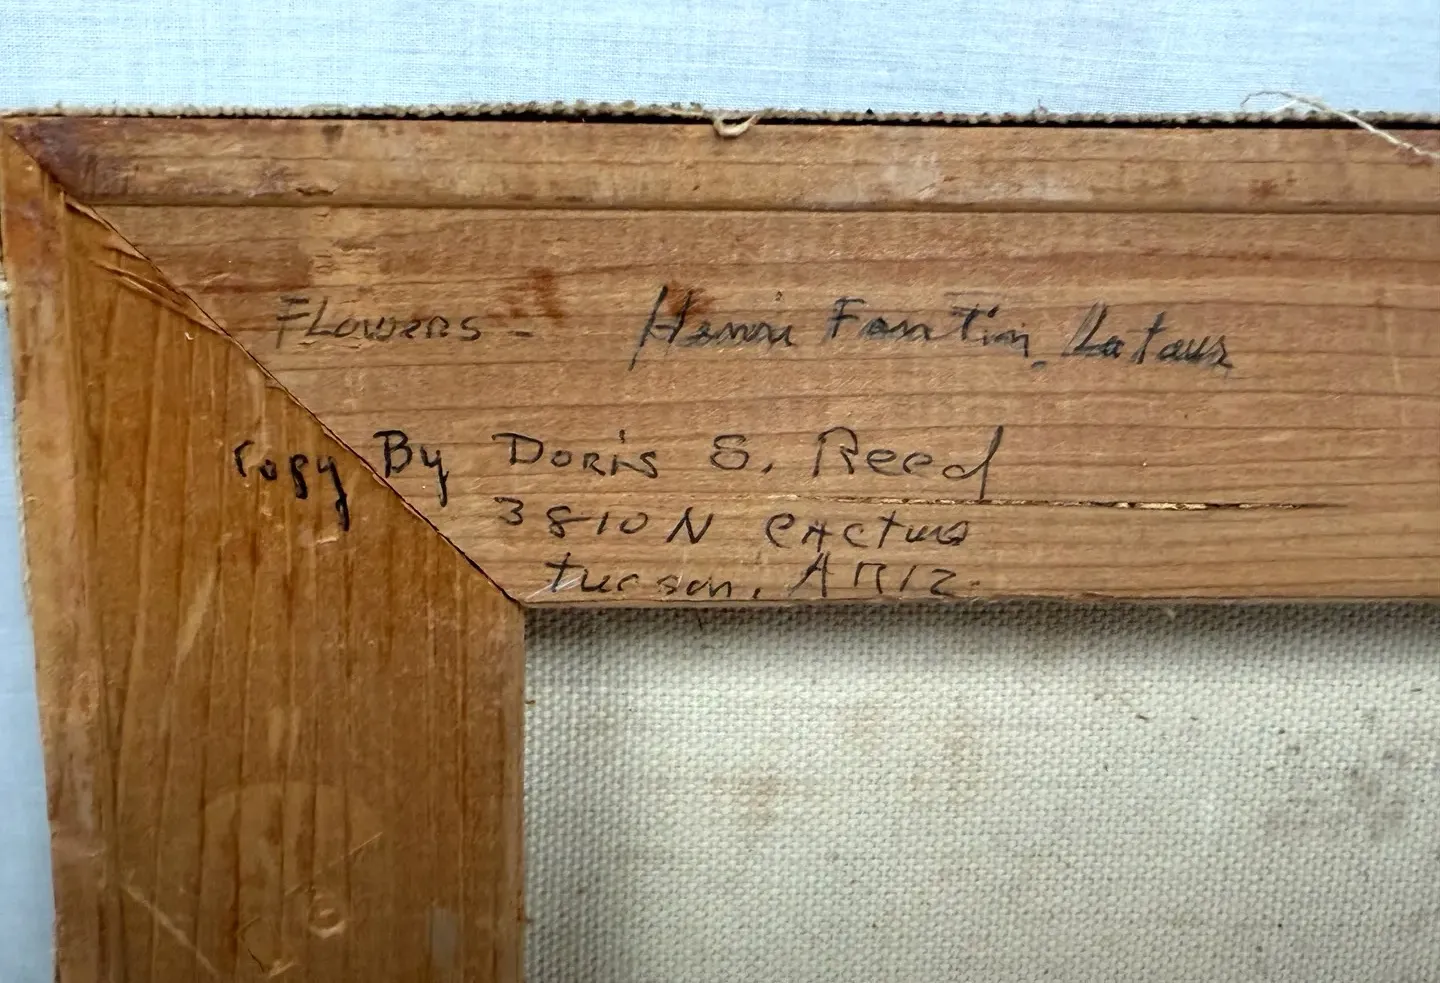 FLOWERS - Henri Fantin Latour
Copy By DORIS S. Reed
3810 N CACTUS
tucson, ARIZ.